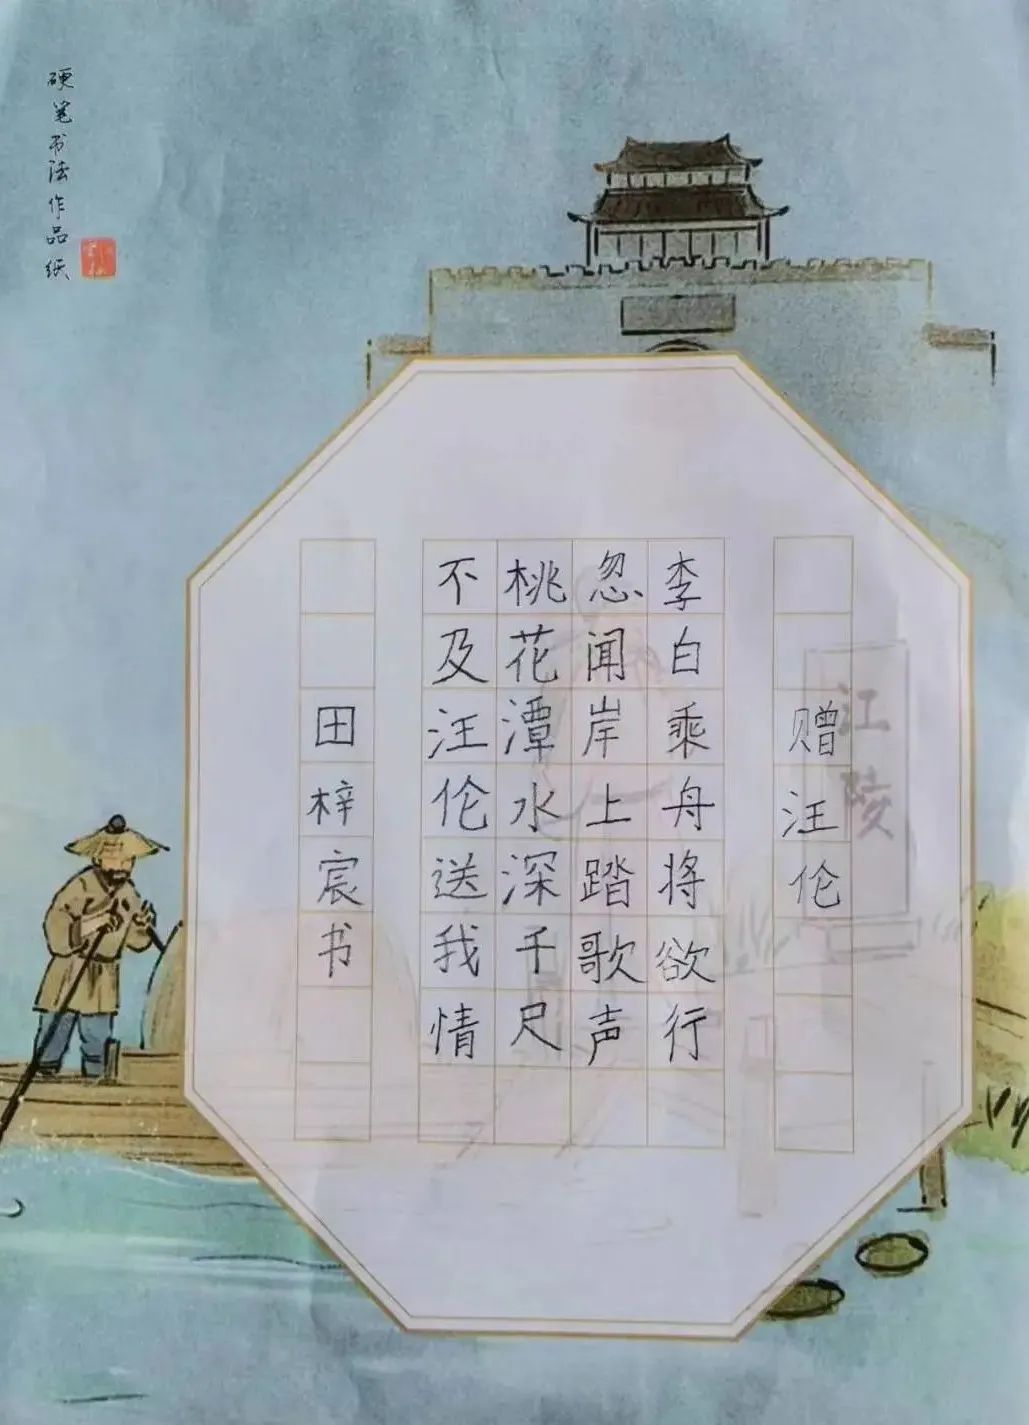 赠汪伦
李白乘舟将欲行
忽闻岸上踏歌声
桃花潭水深千尺
不及汪伦送我情
田梓宸书
硬笔书法作品纸
江陵